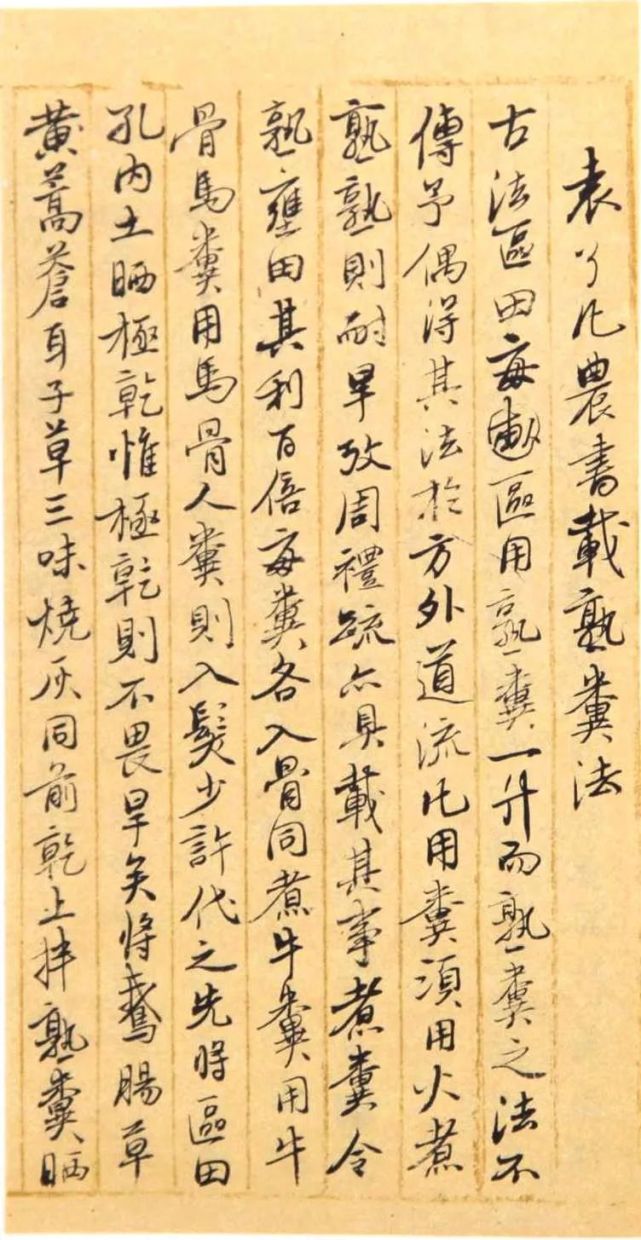 袁了凡農書載熟糞法
古法區田每畝區用熟糞一升而熟糞之法不
傳予偶得其法於方外道流凡用糞須用火煮
熟熟則耐旱攷周禮疏亦具載其事煮糞令
熟壅田其利百倍每糞各入骨同煮牛糞用牛
骨馬糞用馬骨人糞則入髮少許代之先將區田
孔內土晒極乾惟極乾則不畏旱矣將鵞腸草
黃蒿蒼耳子草三味燒灰同前乾土拌熟糞晒